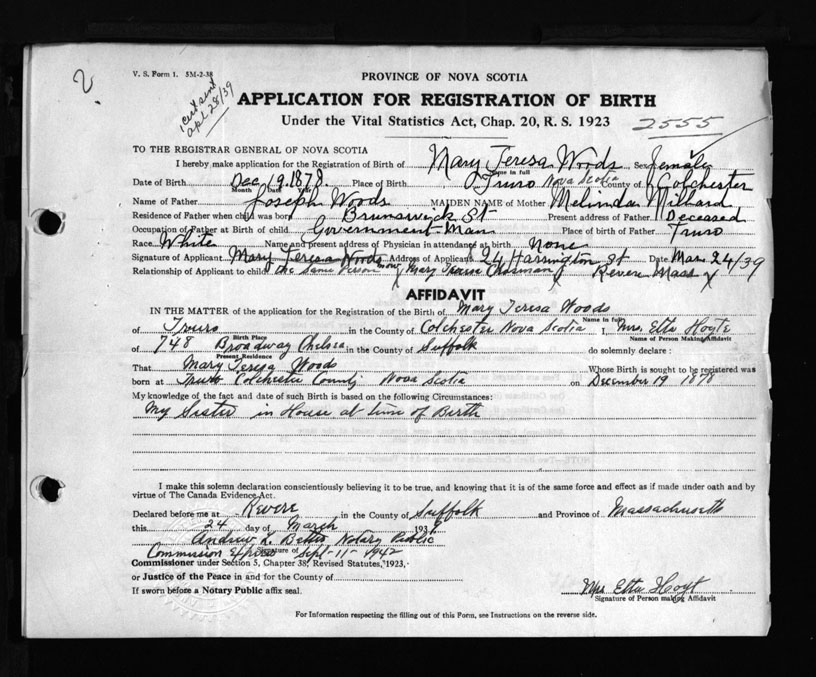 2.
V. S. Form 1. 5M-2-38
Cert sent
apl 28/39
PROVINCE OF NOVA SCOTIA
APPLICATION FOR REGISTRATION OF BIRTH
Under the Vital Statistics Act, Chap. 20, R. S. 1923
2555
TO THE REGISTRAR GENERAL OF NOVA SCOTIA
I hereby make application for the Registration of Birth of Mary Teresa Woods Sex female
Name in full
Date of Birth Dec 19. 1878. Place of Birth Truro Nova Scotia County of Colchester
Month Day Year
Name of Father Joseph Woods MAIDEN NAME of Mother Melinda
Residence of Father when child was born Brunswick St Present address of Father Deceased
Occupation of Father at Birth of child Government Man Place of birth of Father Truro
Race White Name and present address of Physician in attendance at birth None
Signature of Applicant Mary Teresa Woods Address of Applicant 24 Harrington St Date Mar. 24/39
Relationship of Applicant to child The Same Person now Mary Revere Mass
AFFIDAVIT
IN THE MATTER of the application for the Registration of the Birth of Mary Teresa Woods
Name in full
of Truro in the County of Colchester Nova Scotia I, Mrs. Etta Hoyte
Birth Place Name of Person Making Affidavit
of 748 Broadway Chelsea in the County of Suffolk do solemnly declare :
Present Residence
That Mary Teresa Woods Whose Birth is sought to be registered was
born at Truro Colchester County Nova Scotia on December 19 1878
My knowledge of the fact and date of such Birth is based on the following Circumstances:
My Sister in House at time of Birth
I make this solemn declaration conscientiously believing it to be true, and knowing that it is of the same force and effect as if made under oath and by
virtue of The Canada Evidence Act.
Declared before me at Revere in the County of Suffolk and Province of Massachusetts
this 24 day of March 1939
Andrew L. Bettis Notary Public
Commission Expires Sept-11-1942
Signature of
Commissioner under Section 5, Chapter 38, Revised Statutes, 1923,
or Justice of the Peace in and for the County of
If sworn before a Notary Public affix seal.
Mrs Etta Hoyt
Signature of Person making Affidavit
For Information respecting the filling out of this Form, see Instructions on the reverse side.